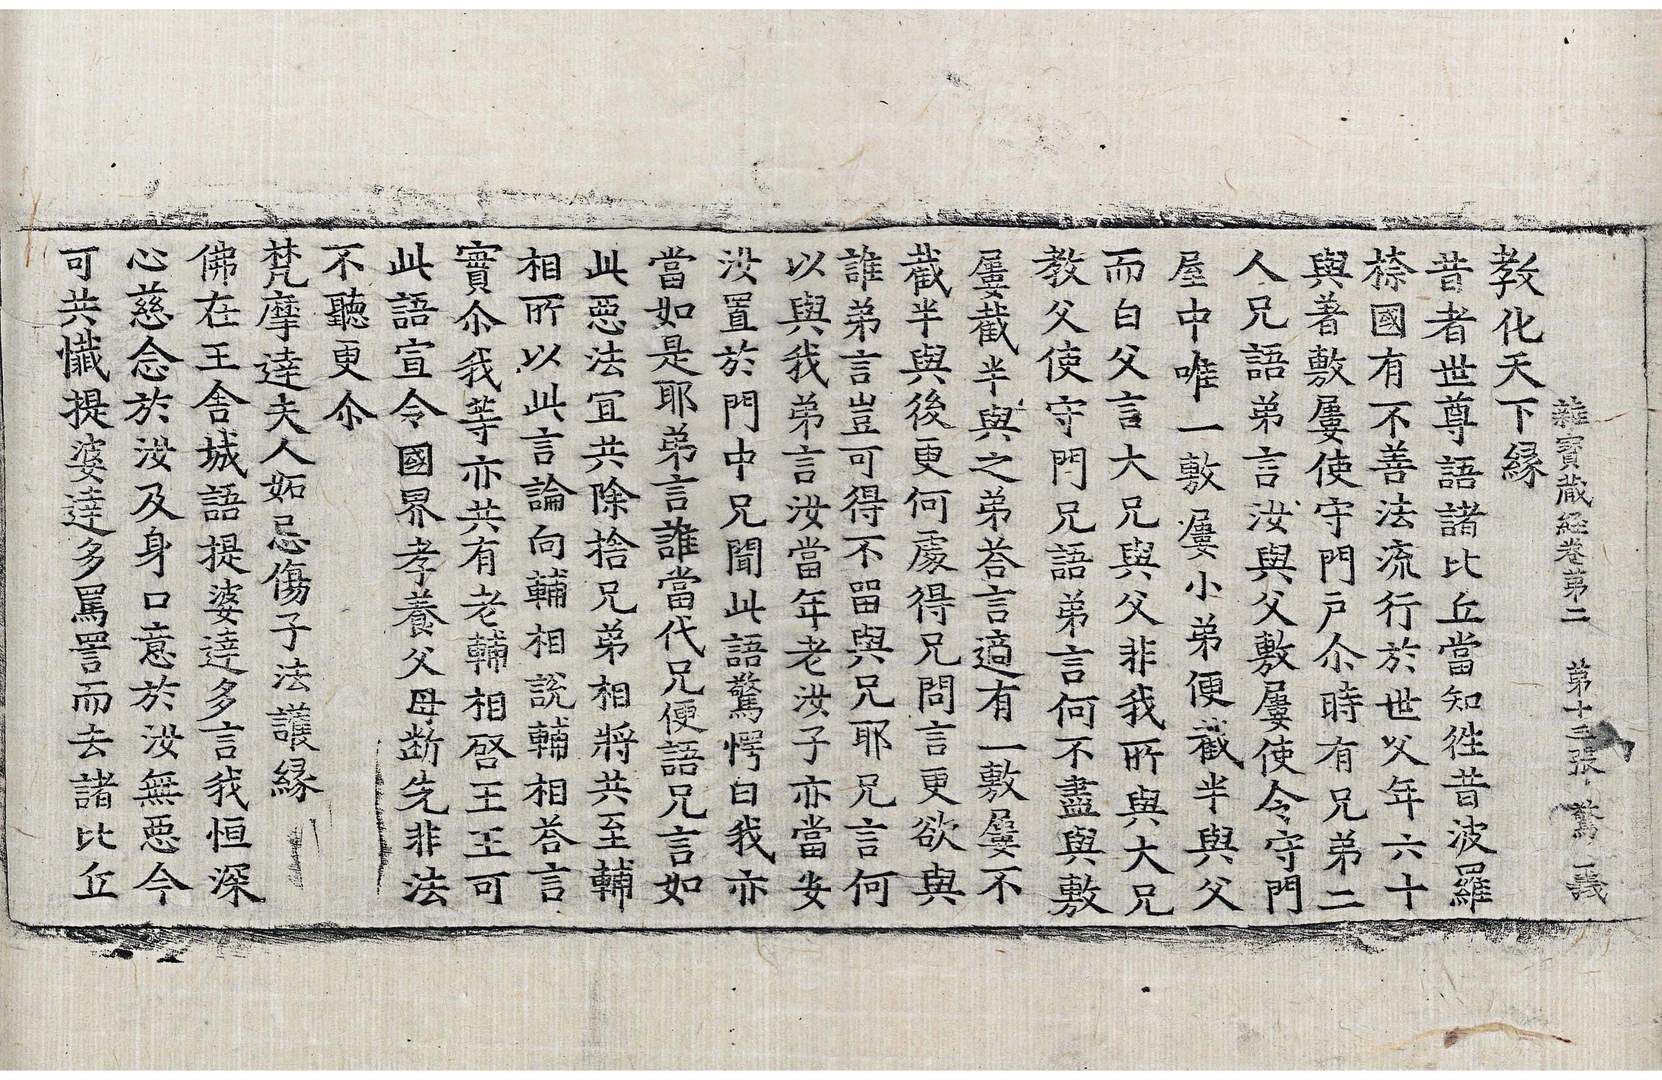 雜寶蔵經卷苐二　苐十三張　義
教化天下縁
昔者世尊語諸比丘當知徃昔波羅
㮈國有不善法流行於世父年六十
與著敷屢使守門戶尒時有兄弟二
人兄語弟言汝與父敷屢使令守門
屋中唯一敷屢小弟便截半與父
而白父言大兄與父非我所與大兄
教父使守門兄語弟言何不盡與敷
屢截半與之弟荅言適有一敷屢不
截半與後更何處得兄問言更欲與
誰弟言豈可得不留與兄耶兄言何
以與我弟言汝當年老汝子亦當安
汝置於門中兄聞此語驚愕曰我亦
當如是耶弟言誰當代兄便語兄言如
此惡法冝共除捨兄弟相將共至輔
相所以此言論向輔相說輔相荅言
實尒我等亦共有老輔相啓王王可
此語宣令國界孝養父母断先非法
不聽更尒
梵摩達夫人妬忌傷子法護縁
佛在王舍城語提婆達多言我恒深
心慈念於汝及身口意於汝無惡今
可共懺提婆達多罵詈而去諸比丘